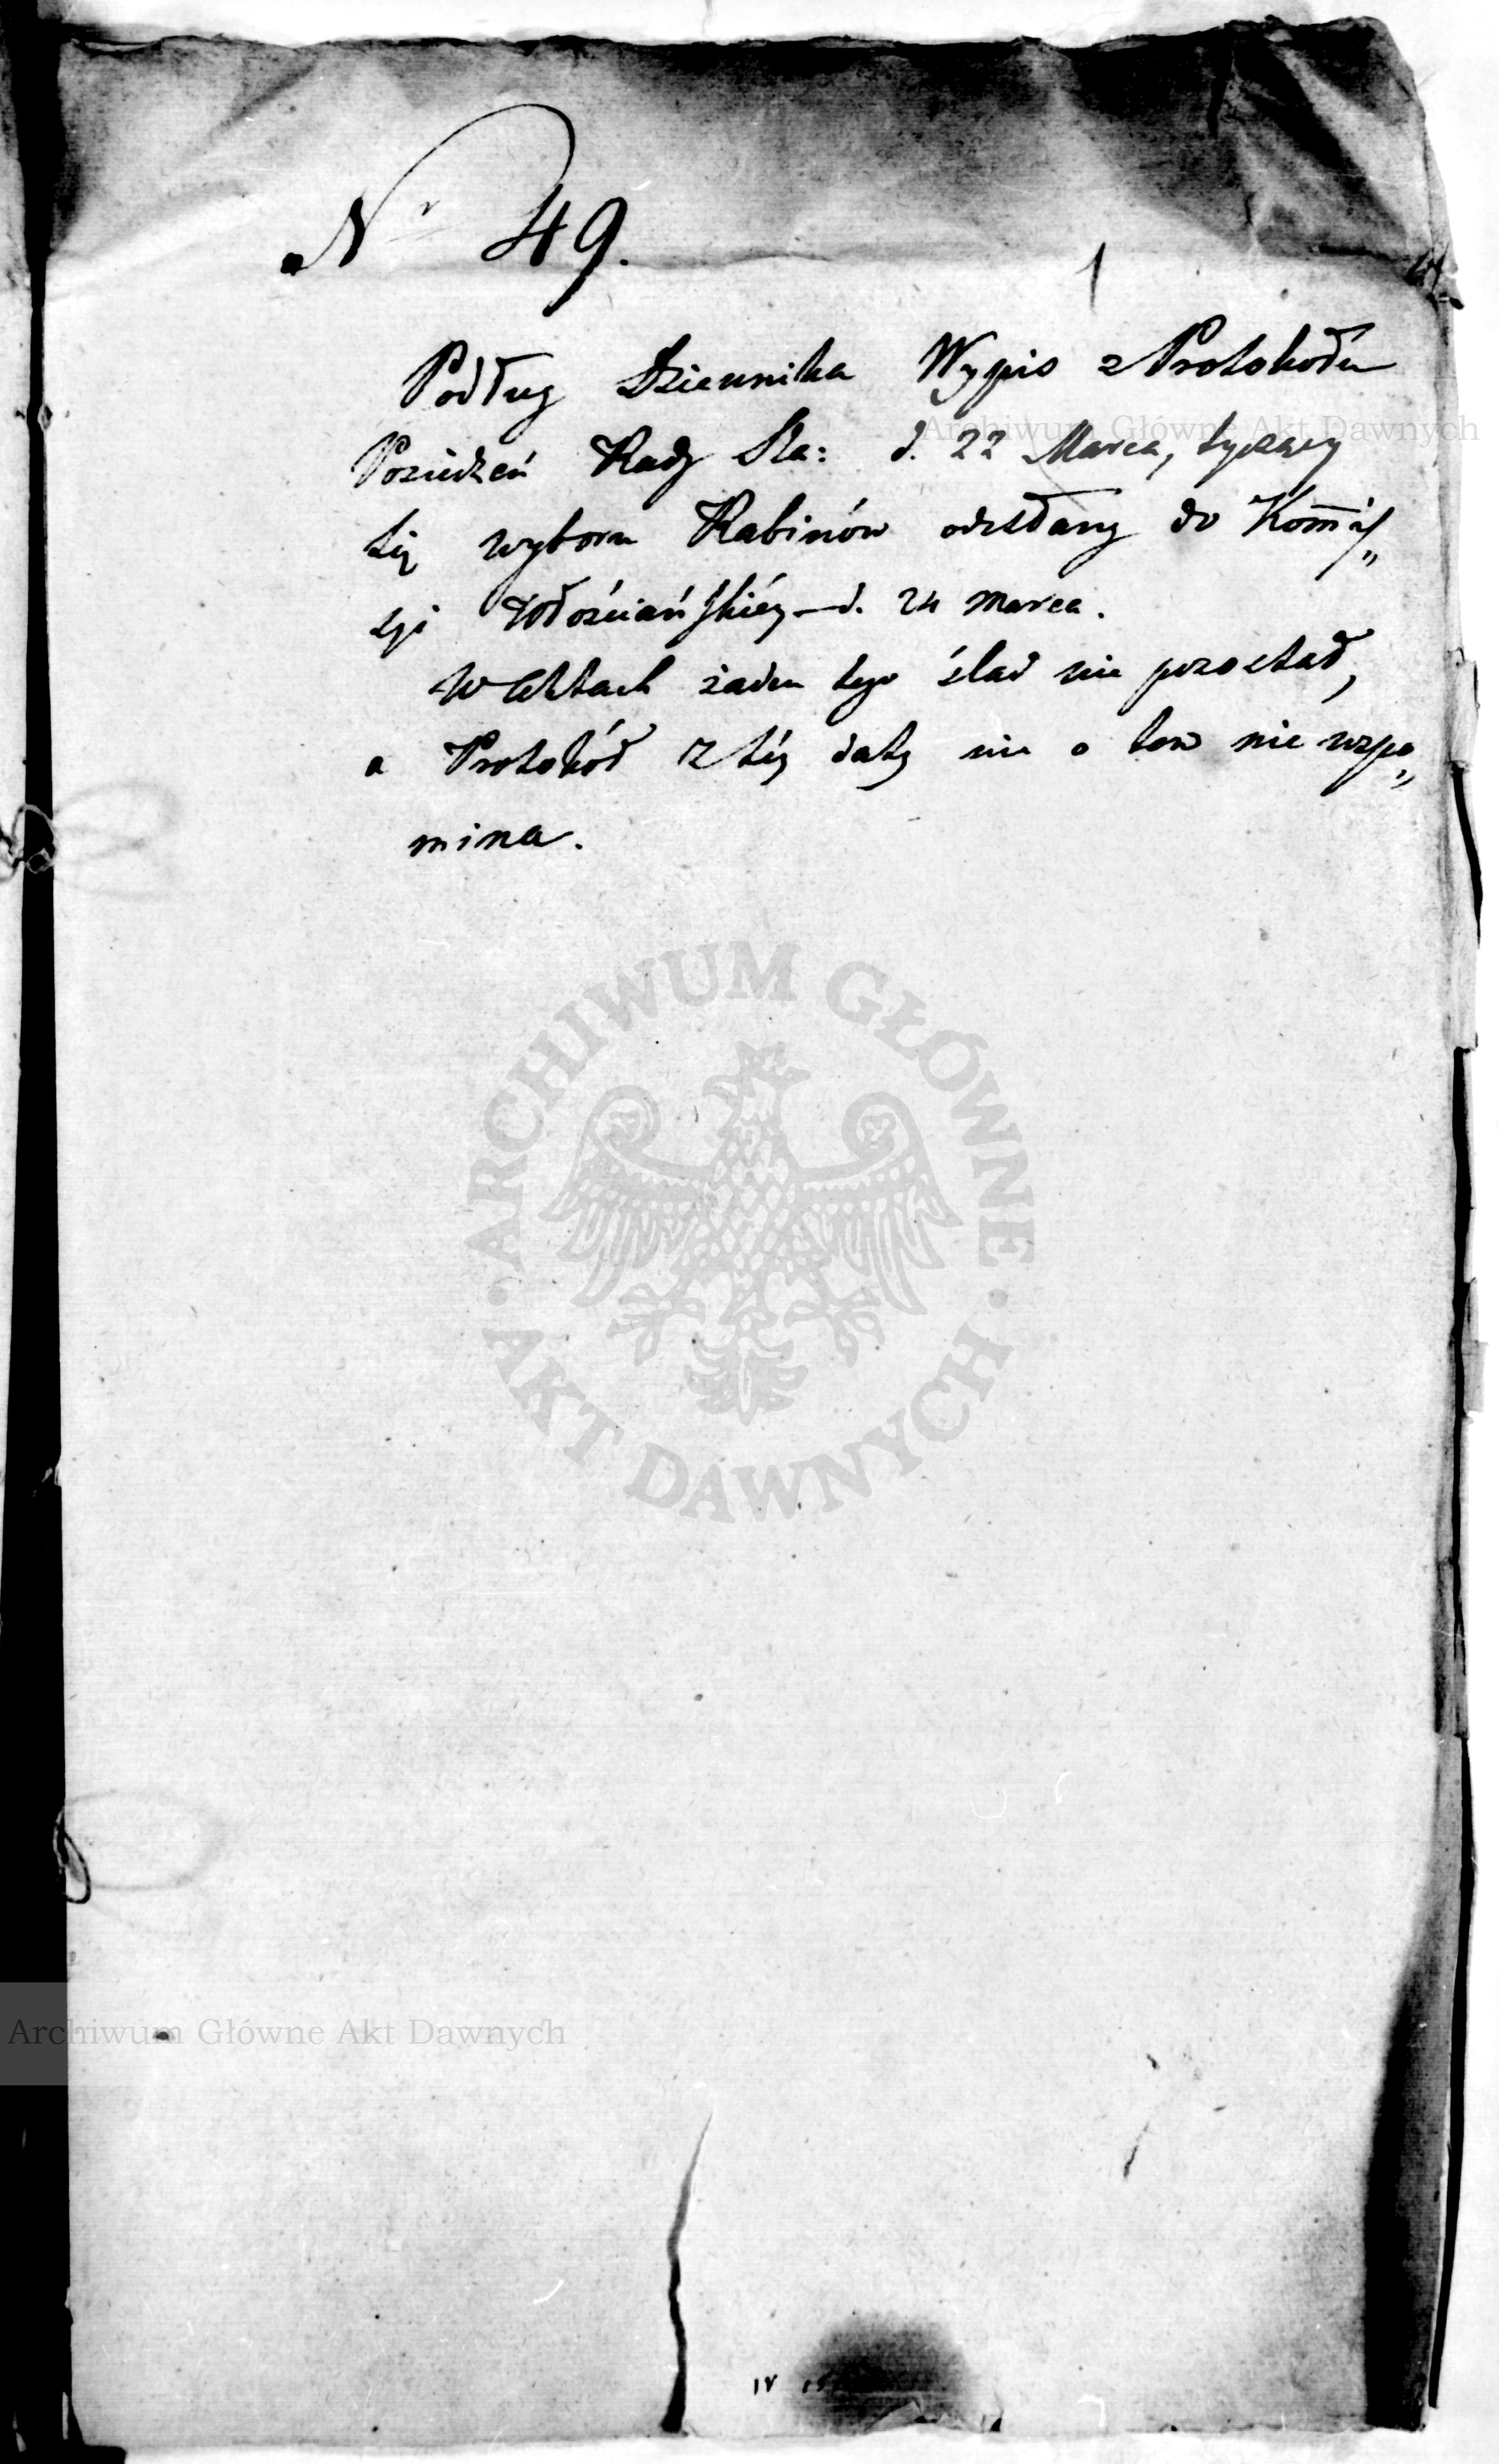 Nr 49.
1
Podług Dziennika Wypis z Protokołu
Posiedzeń Rady Sta: d. 22 Marca, tyczący
się wyboru Rabinów odesłany do Kom̄is„
syi Włościańskiéy – d. 24 Marca.
W Aktach żaden tego ślad nie pozostał,
a Protokół z téy daty nic o tem nie wspo„
mina.
Archiwum Główne Akt Dawnych
ARCHIWUM GŁÓWNE AKT DAWNYCH
Archiwum Główne Akt Dawnych